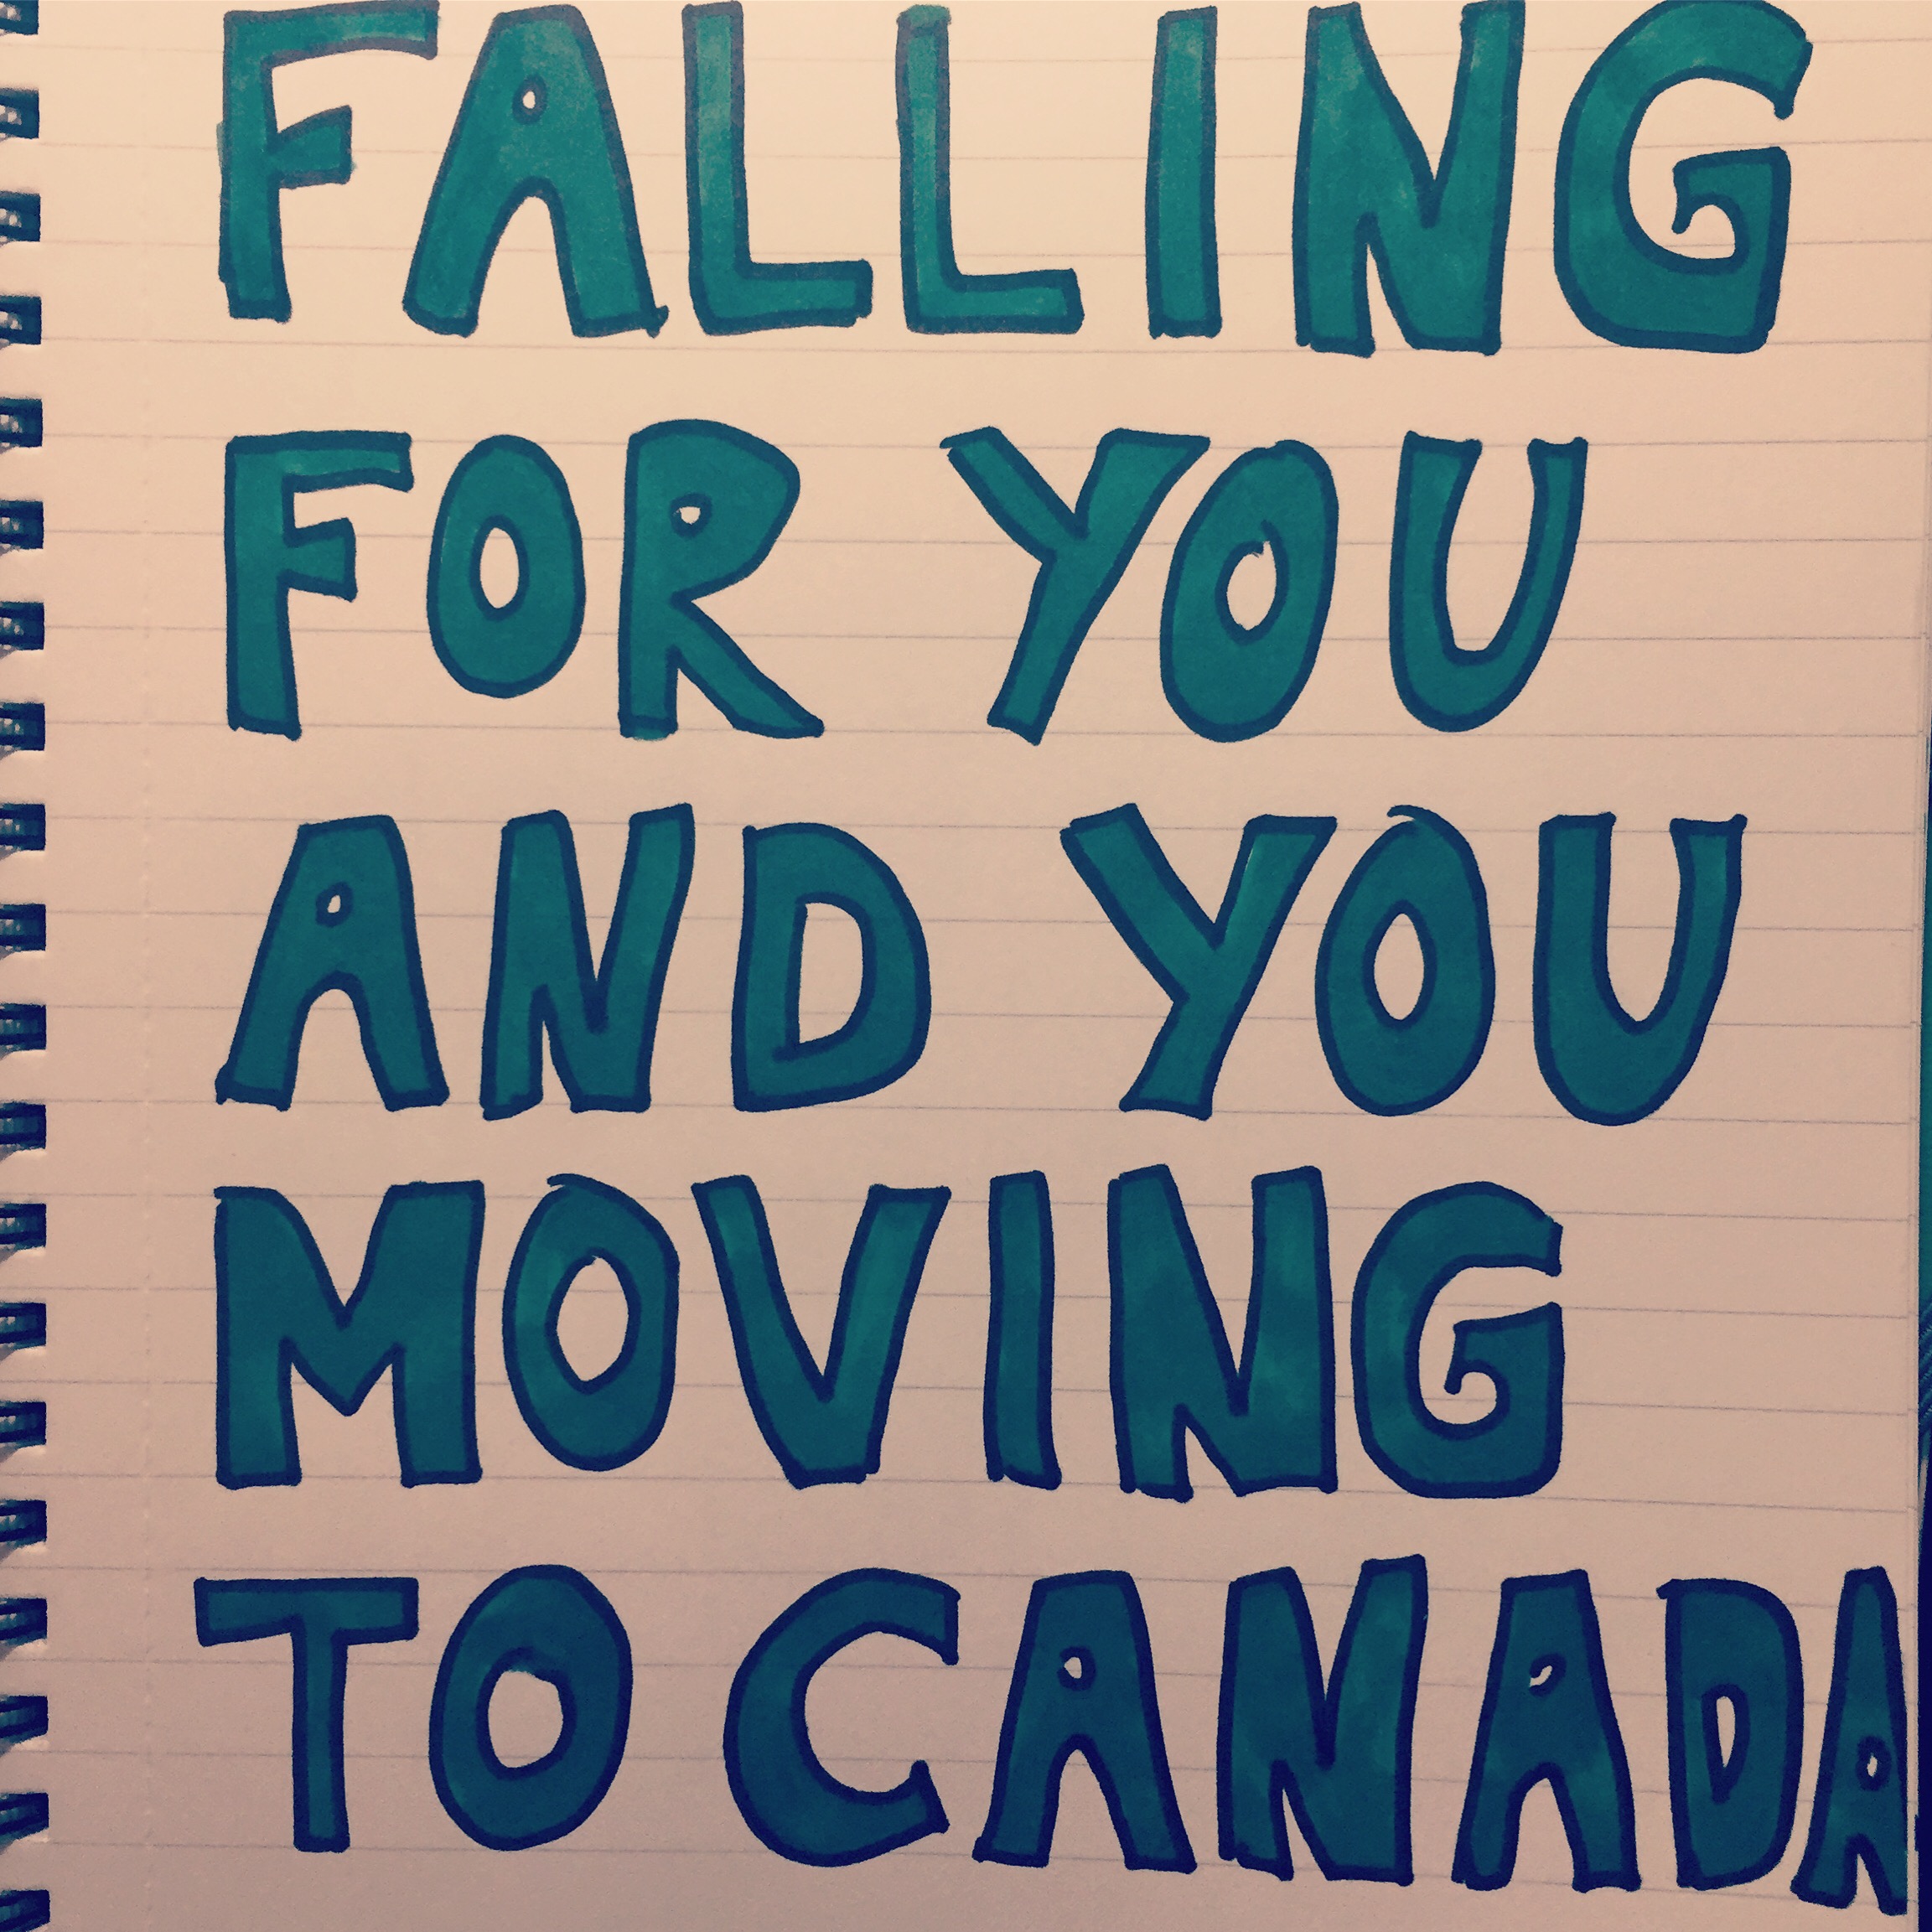 FALLING
FOR YOU
AND YOU
MOVING
TO CANADA